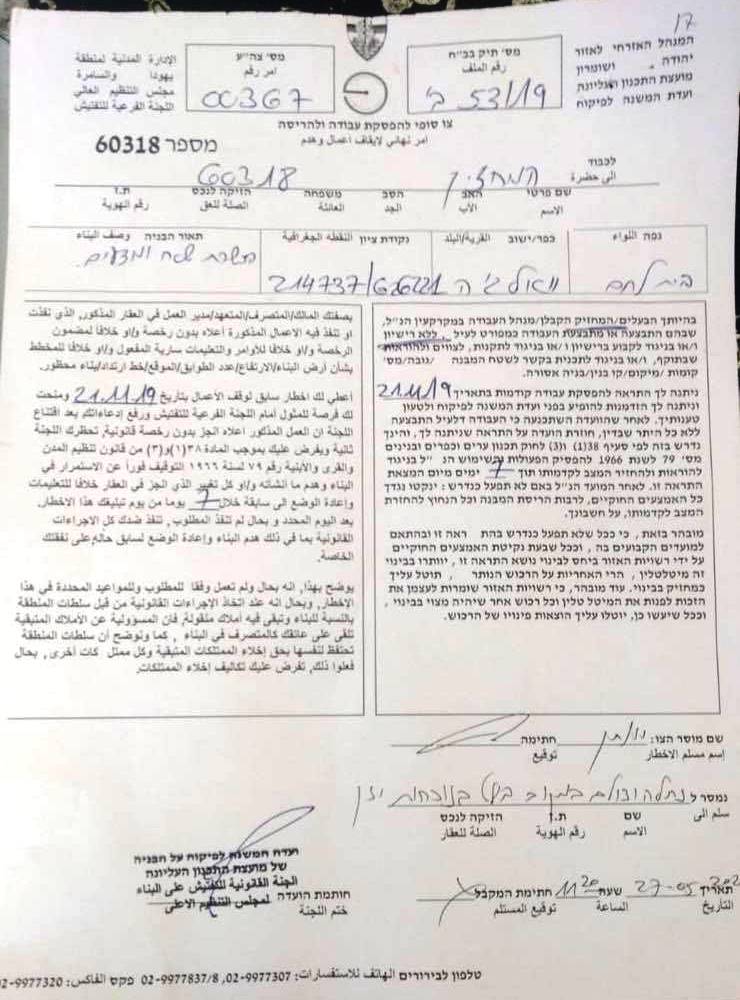 17
המנהל האזרחי לאזור
יהודה ושומרון
מועצת התכנון העליונה
ועדת המשנה לפיקוח
מס׳ תיק בב״ח
رقم الملف
53/19 ב׳
מס׳ צה״ע
امر رقم
00367
الإدارة المدنية لمنطقة
يهودا والسامرة
مجلس التنظيم العالي
اللجنة الفرعية للتفتيش
צו סופי להפסקת עבודה ולהריסה
امر نهائي لإيقاف اعمال وهدم
מספר 60318
לכבוד
الى حضرة
המחזיק 60318
שם פרטי האב הסב משפחה הזיקה לנכס ת.ז
الاسم الأب الجد العائلة الصلة للعق رقم الهوية
נפה اللواء כפר/ישוב القرية/البلد נקודת ציון النقطة الجغرافية תאור הבניה وصف البناء
בית לחם 214737/626221
בהיותך הבעלים/המחזיק הקבלן/מנהל העבודה במקרקעין הנ״ל,
שבהם התבצעה או מתבצעת העבודה כמפורט לעיל, ללא רישיון
ו/או בניגוד לקבוע ברישיון ו/או בניגוד לתקנות, לצווים ולהוראות
שבתוקף, ו/או בניגוד לתכנית בקשר לשטח המבנה /גובה/מס׳
קומות /מיקום/קו בנין/בניה אסורה.
ניתנה לך התראה להפסקת עבודה קודמות בתאריך 21.11.19
וניתנה לך הזדמנות להופיע בפני ועדת המשנה לפיקוח ולטעון
טענותיך. לאחר שהוועדה השתכנעה כי העבודה דלעיל התבצעה
ללא כל היתר שבדין, חוזרת הועדה על התראה שניתנה לך, והינך
נדרש בזה לפי סעיף 38(1) ו(3) לחוק תכנון ערים וכפרים ובנינים
מס׳ 79 לשנת 1966 להפסיק הפעולות והשימוש הנ״ל בניגוד
להוראות ולהחזיר המצב לקדמותו תוך 7 ימים מיום המצאת
התראה זו. לאחר המועד הנ״ל באם לא תפעל כנדרש: ינקטו נגדך
כל האמצעים החוקיים, לרבות הריסת המבנה וכל הנחוץ להחזרת
המצב לקדמותו, על חשבונך.
מובהר בזאת, כי ככל שלא תפעל כנדרש בהת ראה זו ובהתאם
למועדים הקבועים בה, וככל שבעת נקיטת האמצעים החוקיים
על ידי רשויות האזור ביחס לבינוי נושא התראה זו, יוותרו בבינוי
זה מיטלטלין, הרי האחריות על הרכוש הנותר, תוטל עליך
כמחזיק בבינוי. עוד מובהר, כי רשויות האזור שומרות לעצמן את
הזכות לפנות את המיטל טלין וכל רכוש אחר שיהיה מצוי בבינוי,
וככל שיעשו כן, יוטלו עליך הוצאות פינויו של הרכוש.
بصفتك المالك/المتصرف/المتعهد/مدير العمل في العقار المذكور, الذي نفذت
او تنفذ فيه الاعمال المذكورة أعلاه بدون رخصة و/او خلافا لمضمون
الرخصة و/او خلافا للأوامر والتعليمات سارية المفعول و/او خلافا للمخطط
بشأن أرض البناء/الارتفاع/عدد الطوابق/الموقع/خط ارتداد/بناء محظور.
أعطي لك اخطار سابق لوقف الأعمال بتاريخ 21.11.19 ومنحت
لك فرصة للمثول أمام اللجنة الفرعية للتفتيش ورفع إدعاءاتك. بعد اقتناع
اللجنة ان العمل المذكور أعلاه انجز بدون رخصة قانونية, تحظرك اللجنة
ثانية ويفرض عليك بموجب المادة ٣٨(١)و(٣) من قانون تنظيم المدن
والقرى والأبنية رقم ٧٩ لسنة ١٩٦٦ التوقيف فوراً عن الاستمرار في
البناء وهدم ما أنشأته و/او كل تغيير الذي انجز في العقار خلافا للتعليمات
وإعادة الوضع الى سابقة خلال 7 يوما من يوم تبليغك هذا الاخطار.
بعد اليوم المحدد و بحال لم تنفذ المطلوب, تنفذ ضدك كل الاجراءات
القانونية بما في ذلك هدم البناء وإعادة الوضع لسابق حاله على نفقتك
الخاصة.
يوضح بهذا, انه بحال ولم تعمل وفقا للمطلوب وللمواعيد المحددة في هذا
الاخطار, وبحال انه عند اتخاذ الإجراءات القانونية من قبل سلطات المنطقة
بالنسبة للبناء وتبقى فيه أملاك منقولة, فان المسؤولية عن الأملاك المتبقية
تلقى على عاتقك كالمتصرف في البناء, كما ونوضح أن سلطات المنطقة
تحتفظ لنفسها بحق إخلاء الممتلكات المتبقية وكل ممتل كات أخرى, بحال
فعلوا ذلك, تفرض عليك تكاليف إخلاء الممتلكات.
שם מוסר הצו: חתימה
إسم مسلم الاخطار توقيع
נמסר ל
سلم الى
שם ת.ז הזיקה לנכס
الاسم رقم الهوية الصلة للعقار
תאריך 27-05 שעה 11 20 חתימת המקבל
التاريخ الساعة توقيع المستلم
ועדת המשנה לפיקוח על הבניה
של מועצת התכנון העליונה
الجنة القانونية للتفتيش على البناء
לمجلس التنظيم الاعلى
חותמת הועדה
ختم اللجنة
טלפון לבירורים الهاتف للاستفسارات: 02-9977307, 02-9977837/8 פקס الفاكس: 02-9977320